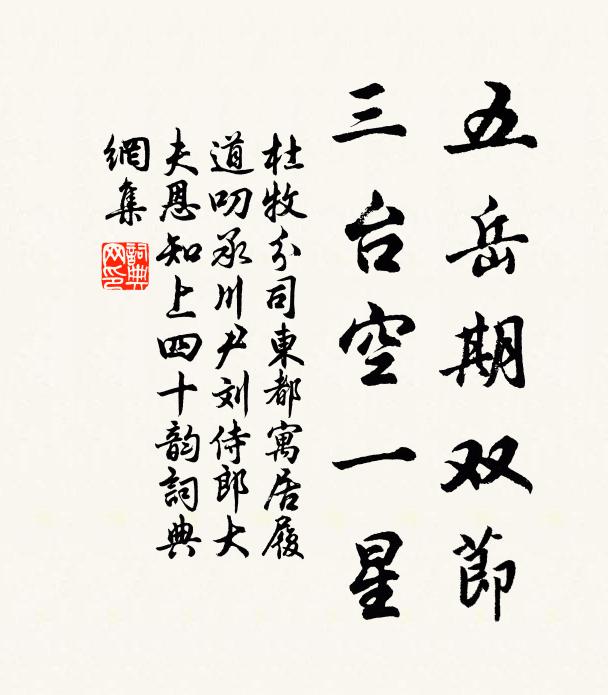 五岳期双節
三台空一星
杜牧分司東都寓居履
道叨承川尹刘侍郎大
夫恩知上四十韵詞典
網集
詞典網印